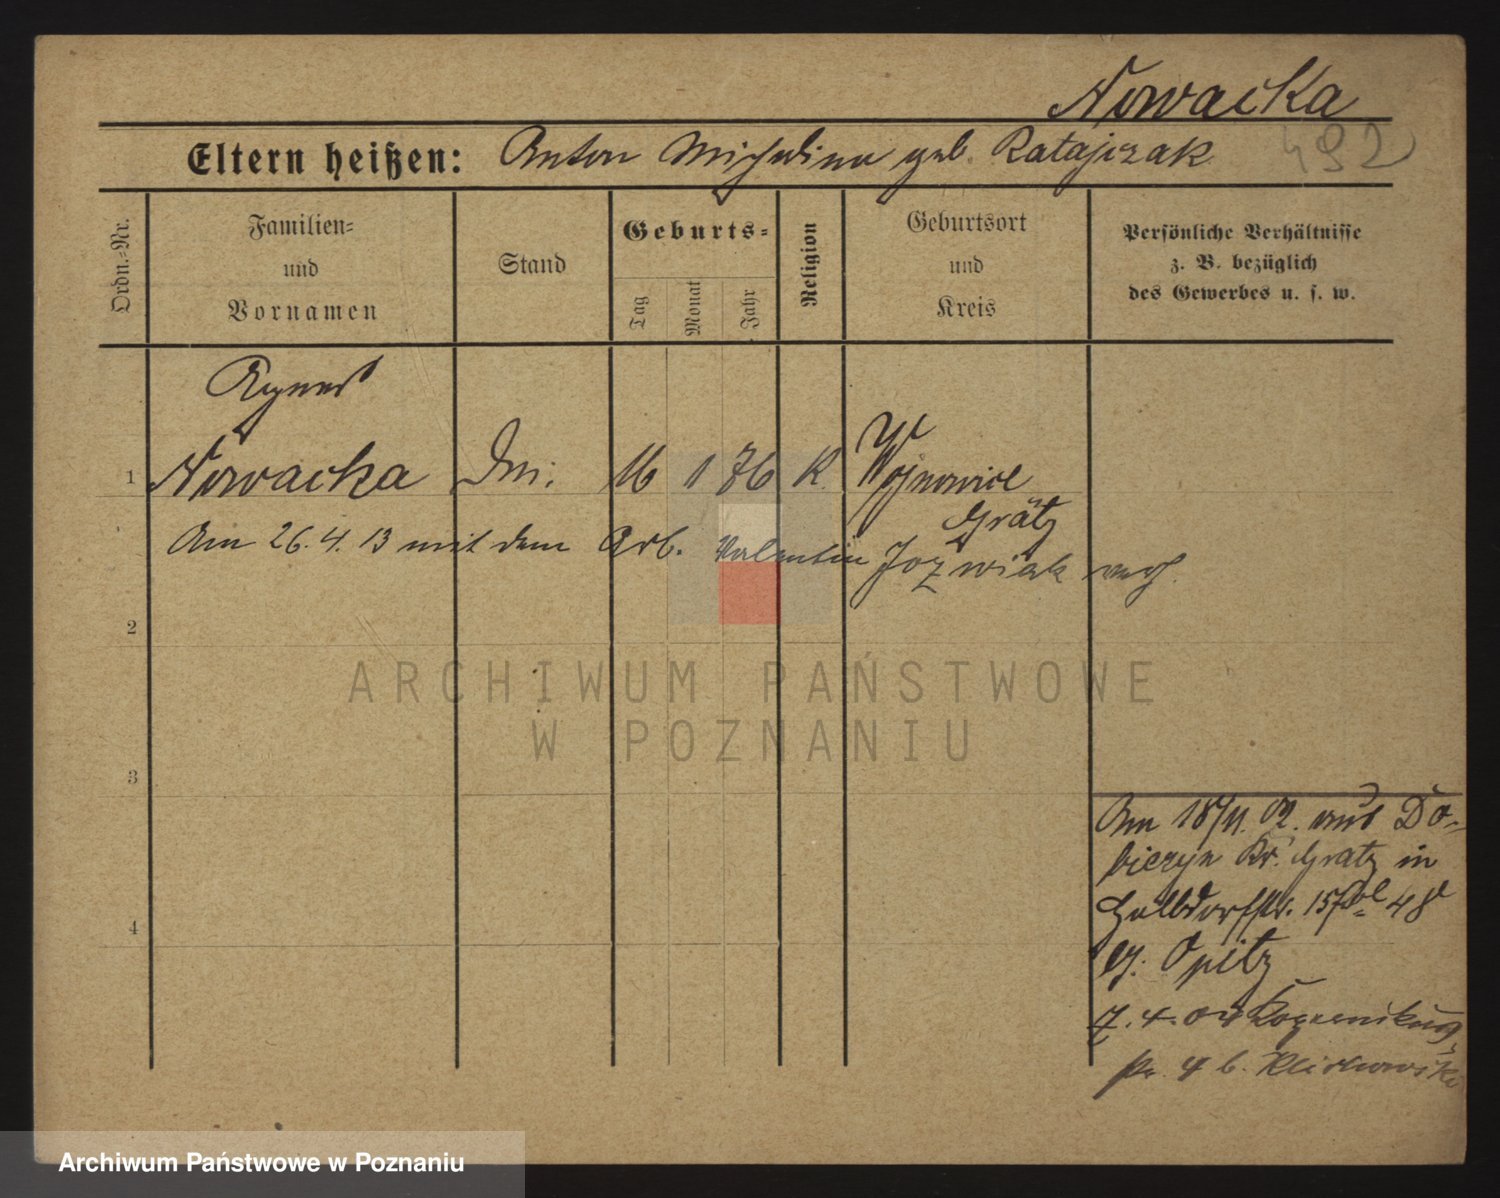 Nowacka
Eltern heißen: Anton Michalina geb. Ratajczak 492
Ordn.-Nr.
Familien-
und
Vornamen
Stand
Geburts-
Tag
Monat
Jahr
Religion
Geburtsort
und
Kreis
Persönliche Verhältnisse
z. B. bezüglich
des Gewerbes u. s. w.
Agnes
1 Nowacka 16 1 76 K. Wojnowice
Grätz
Am 26. 4. 13 mit dem Arb. Valentin Jozwiak verh.
2
3
4
Am 18/11. 02. aus Do-
bieżyn Kr. Grätz in
Halbdorfstr. 15
Opitz
7. 4. 04 Kopernikus
str. 4 b.
ARCHIWUM PAŃSTWOWE
W POZNANIU
Archiwum Państwowe w Poznaniu